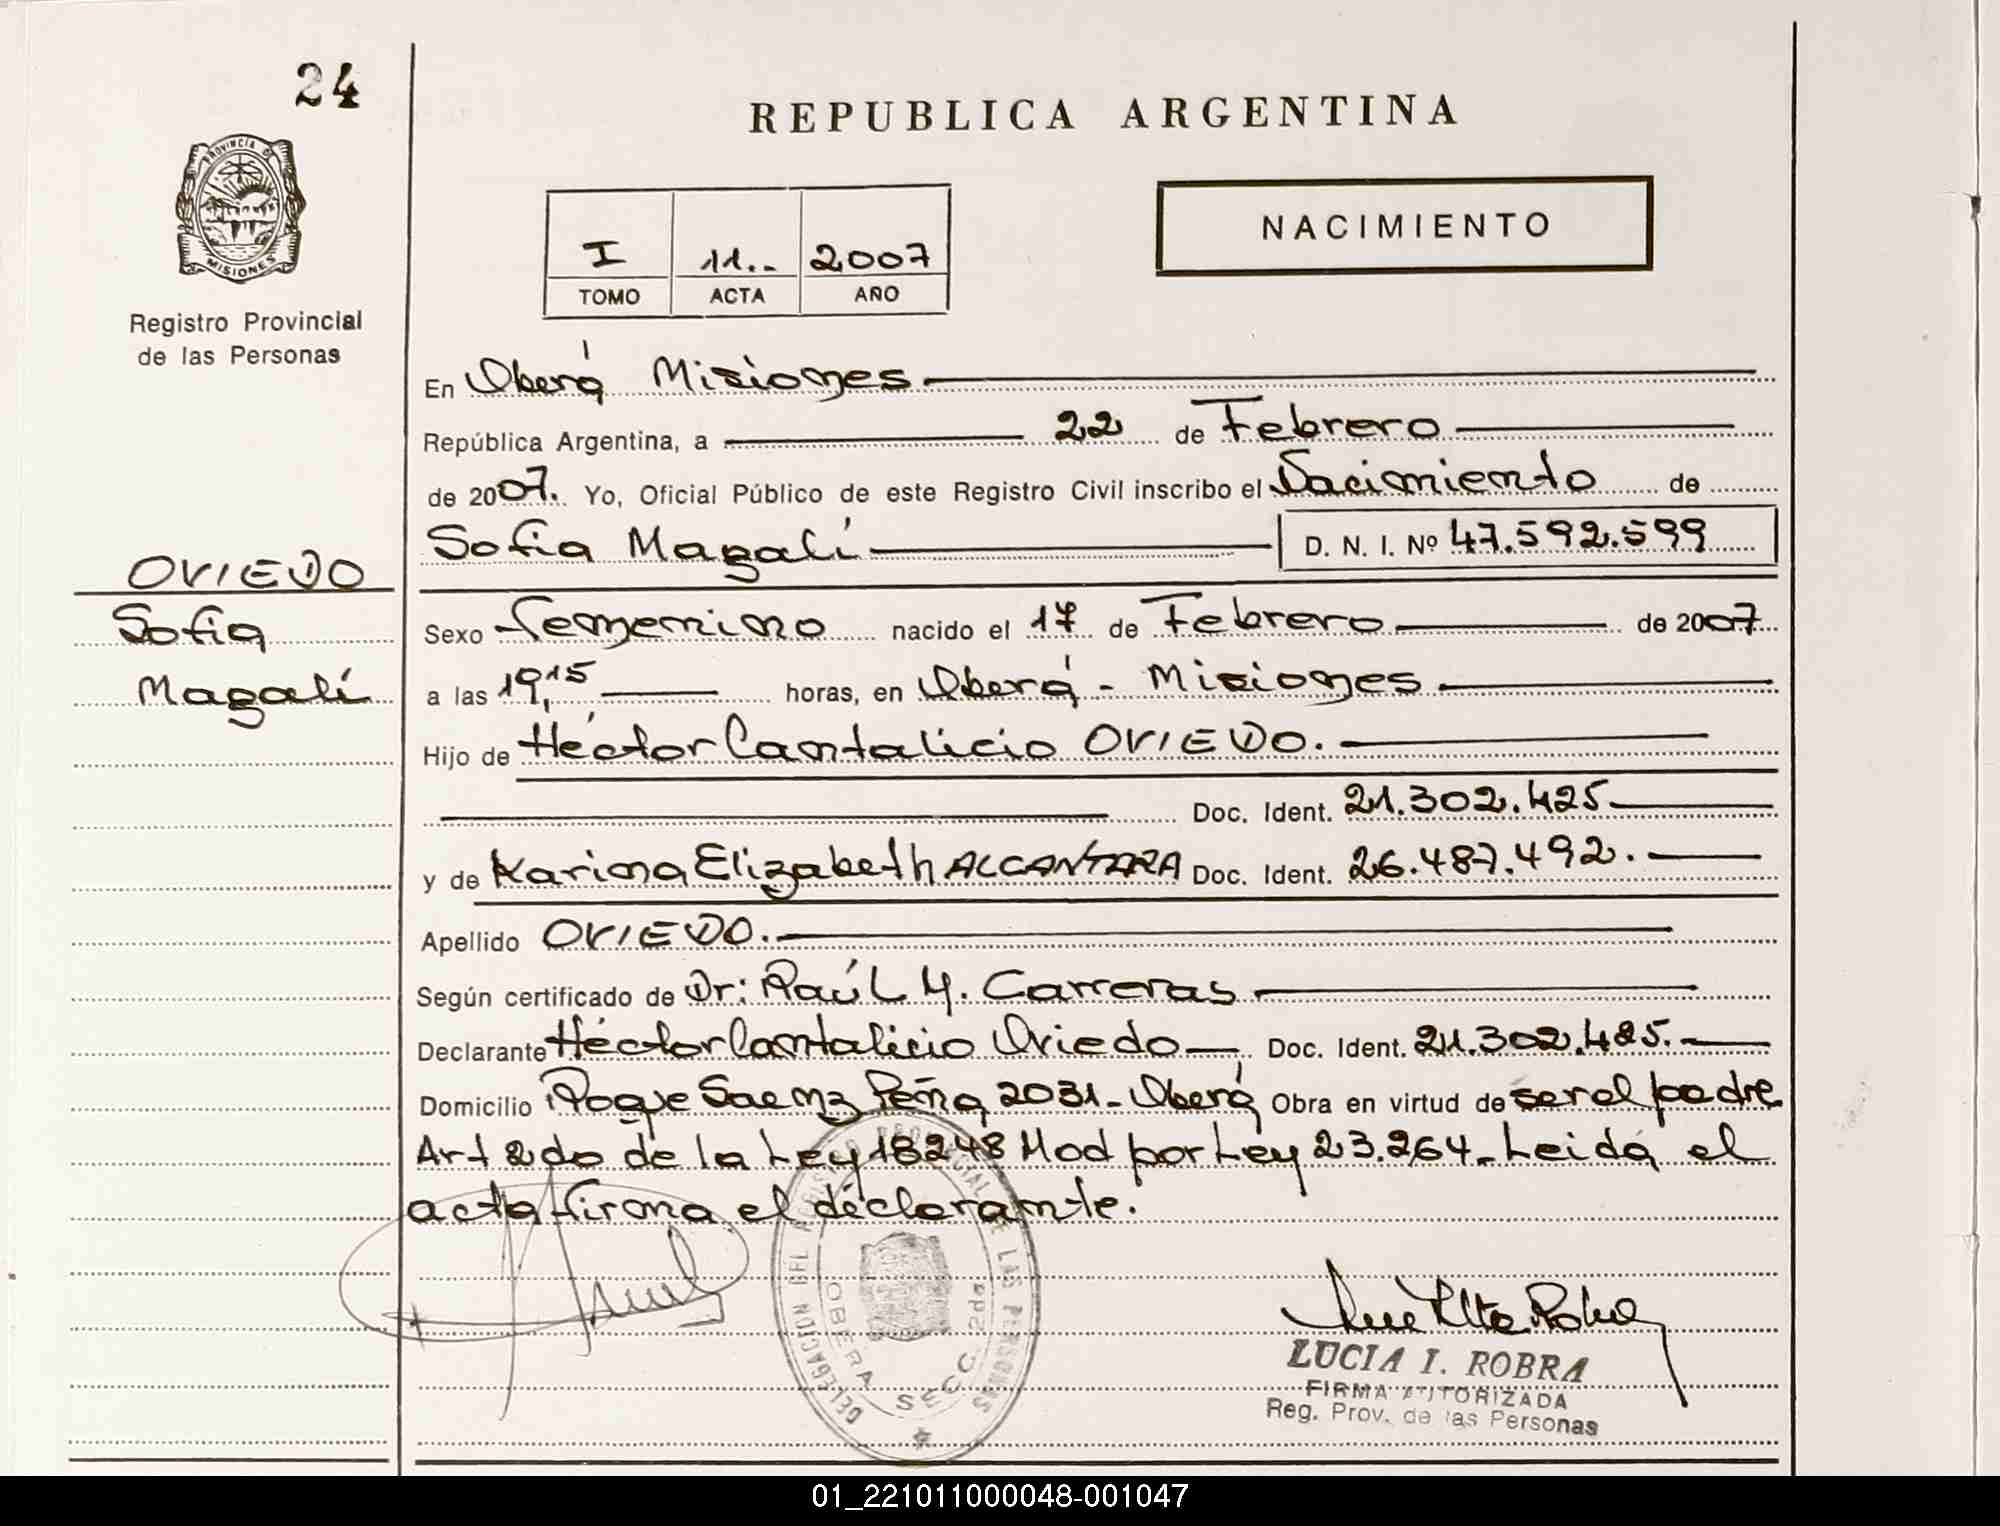 24
REPUBLICA ARGENTINA
PROVINCIA DE
MISIONES
Registro Provincial
de las Personas
I 11.- 2007
TOMO ACTA AÑO
NACIMIENTO
En Oberá Misiones
República Argentina, a 22 de Febrero
de 2007. Yo, Oficial Público de este Registro Civil inscribo el Nacimiento de
Sofia Magalí D. N. I. Nº 47.592.599
OVIEDO
Sofia
Magalí
Sexo femenino nacido el 17 de Febrero de 2007
a las 19,15 horas, en Oberá - Misiones
Hijo de Héctor Cantalicio OVIEDO.
Doc. Ident. 21.302.425
y de Karina Elizabeth ALCANTARA Doc. Ident. 26.487.492.
Apellido OVIEDO.
Según certificado de Dr: Raúl M. Carreras
Declarante Héctor Cantalicio Oviedo Doc. Ident. 21.302.425.
Domicilio Roque Saenz Peña 2031 - Oberá Obra en virtud de ser el padre
Art 2do de la Ley 18248 Mod por Ley 23.264 - Leida el
acta firma el declarante.
DELEGACION DEL REGISTRO PROVINCIAL DE LAS PERSONAS
OBERA SECC. 2da
LUCIA I. ROBRA
FIRMA AUTORIZADA
Reg. Prov. de las Personas
01_221011000048-001047